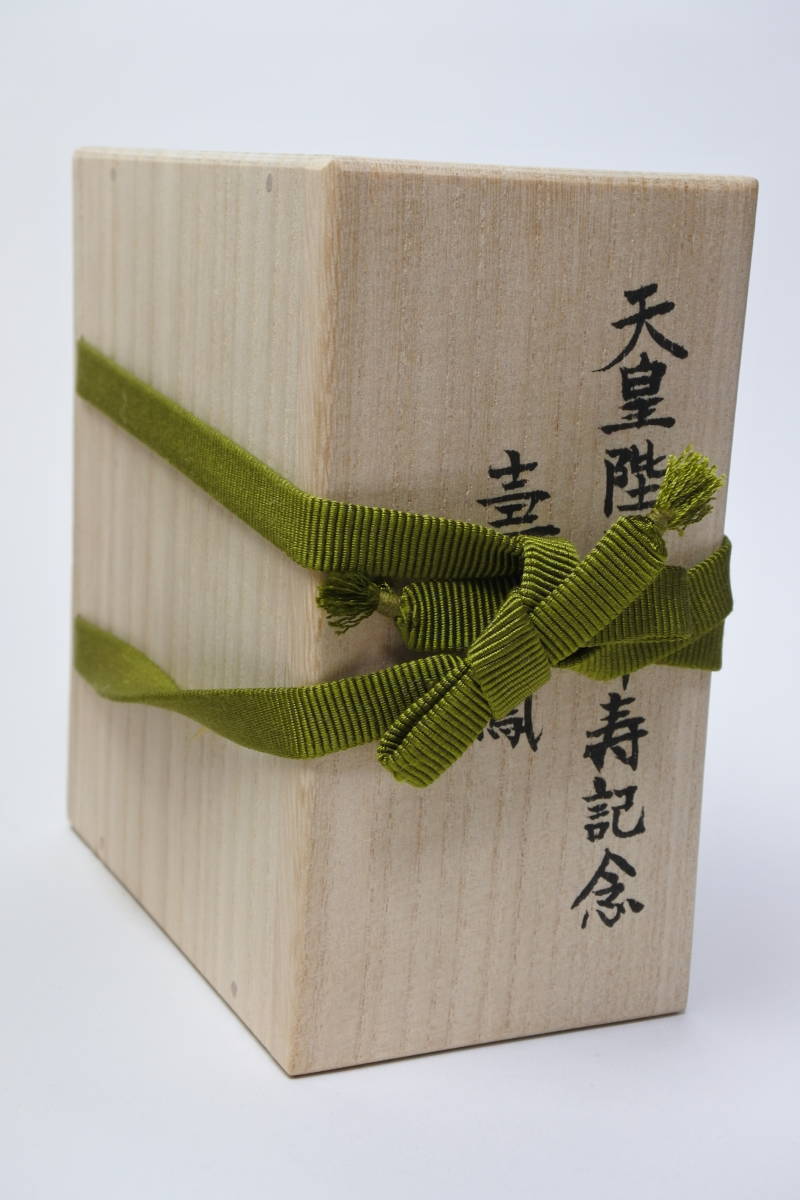 天皇陛寿記念
壺鳳